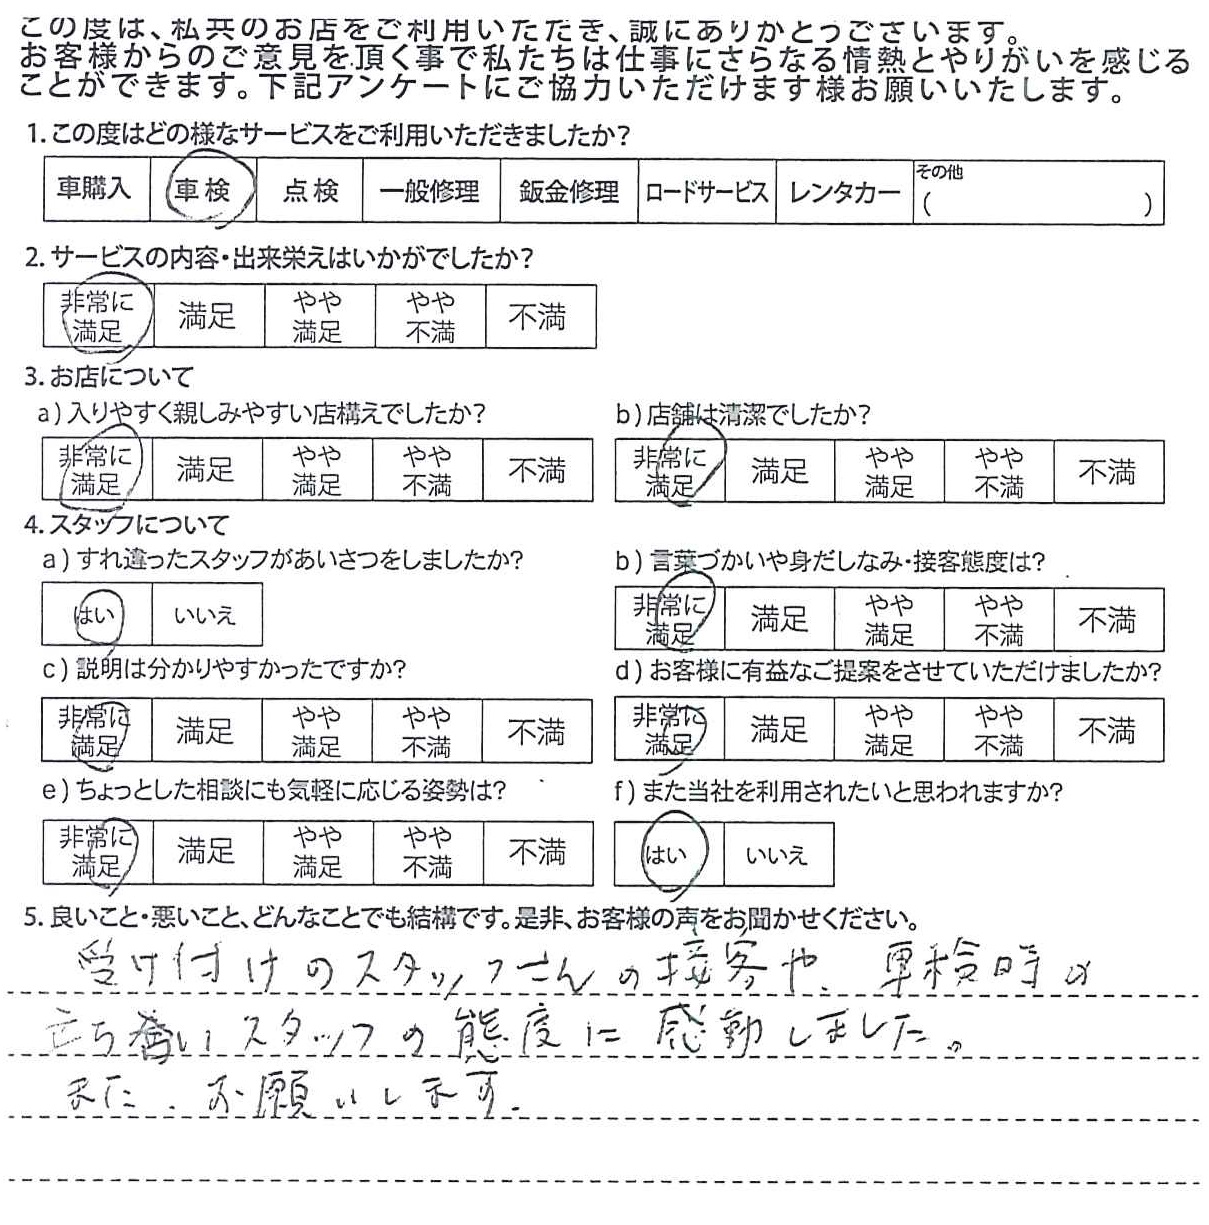 この度は、私共のお店をご利用いただき、誠にありがとうございます。
お客様からのご意見を頂く事で私たちは仕事にさらなる情熱とやりがいを感じる
ことができます。下記アンケートにご協力いただけます様お願いいたします。
1.この度はどの様なサービスをご利用いただきましたか?
車購入 車検 点検 一般修理 鈑金修理 ロードサービス レンタカー その他 ( )
2.サービスの内容・出来栄えはいかがでしたか?
非常に満足 満足 やや満足 やや不満 不満
3.お店について
a)入りやすく親しみやすい店構えでしたか?
非常に満足 満足 やや満足 やや不満 不満
b)店舗は清潔でしたか?
非常に満足 満足 やや満足 やや不満 不満
4.スタッフについて
a)すれ違ったスタッフがあいさつをしましたか?
はい いいえ
b)言葉づかいや身だしなみ・接客態度は?
非常に満足 満足 やや満足 やや不満 不満
c)説明は分かりやすかったですか?
非常に満足 満足 やや満足 やや不満 不満
d)お客様に有益なご提案をさせていただけましたか?
非常に満足 満足 やや満足 やや不満 不満
e)ちょっとした相談にも気軽に応じる姿勢は?
非常に満足 満足 やや満足 やや不満 不満
f)また当社を利用されたいと思われますか?
はい いいえ
5.良いこと・悪いこと、どんなことでも結構です。是非、お客様の声をお聞かせください。
受け付けのスタッフさんの接客や、車検時の
立ち会いスタッフの態度に感動しました。
また、お願いします。